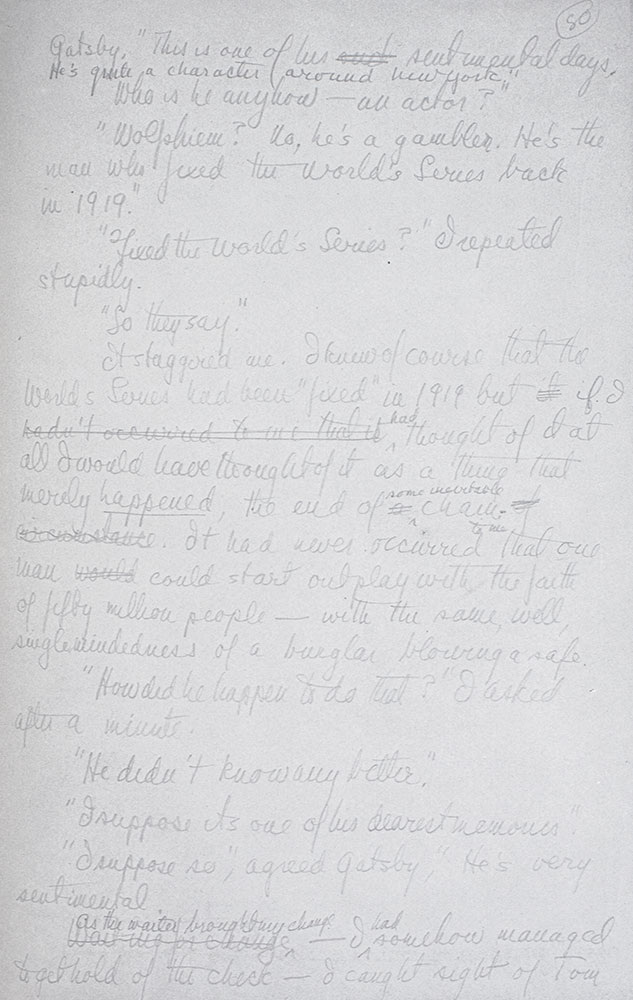 80
Gatsby. "This is one of his such sentimental days.
He's quite a character around New York."
"Who is he anyhow — an actor?"
"Wolfshiem? No, he's a gambler. He's the
man who fixed the World's Series back
in 1919."
"Fixed the World's Series?" I repeated
stupidly.
"So they say."
It staggered me. I knew of course that the
World's Series had been "fixed" in 1919 but if I
hadn't occurred to me that it had thought of it at
all I would have thought of it as a thing that
merely happened, the end of some inevitable chain of
circumstance. It had never occurred to me that one
man would could start out play with the faith
of fifty million people — with the same, well,
singlemindedness of a burglar blowing a safe.
"How did he happen to do that?" I asked
after a minute.
"He didn't know any better."
"I suppose its one of his dearest memories."
"I suppose so", agreed Gatsby, "He's very
sentimental
as the waiter brought my change
— I had somehow managed
to get hold of the check — I caught sight of Tom